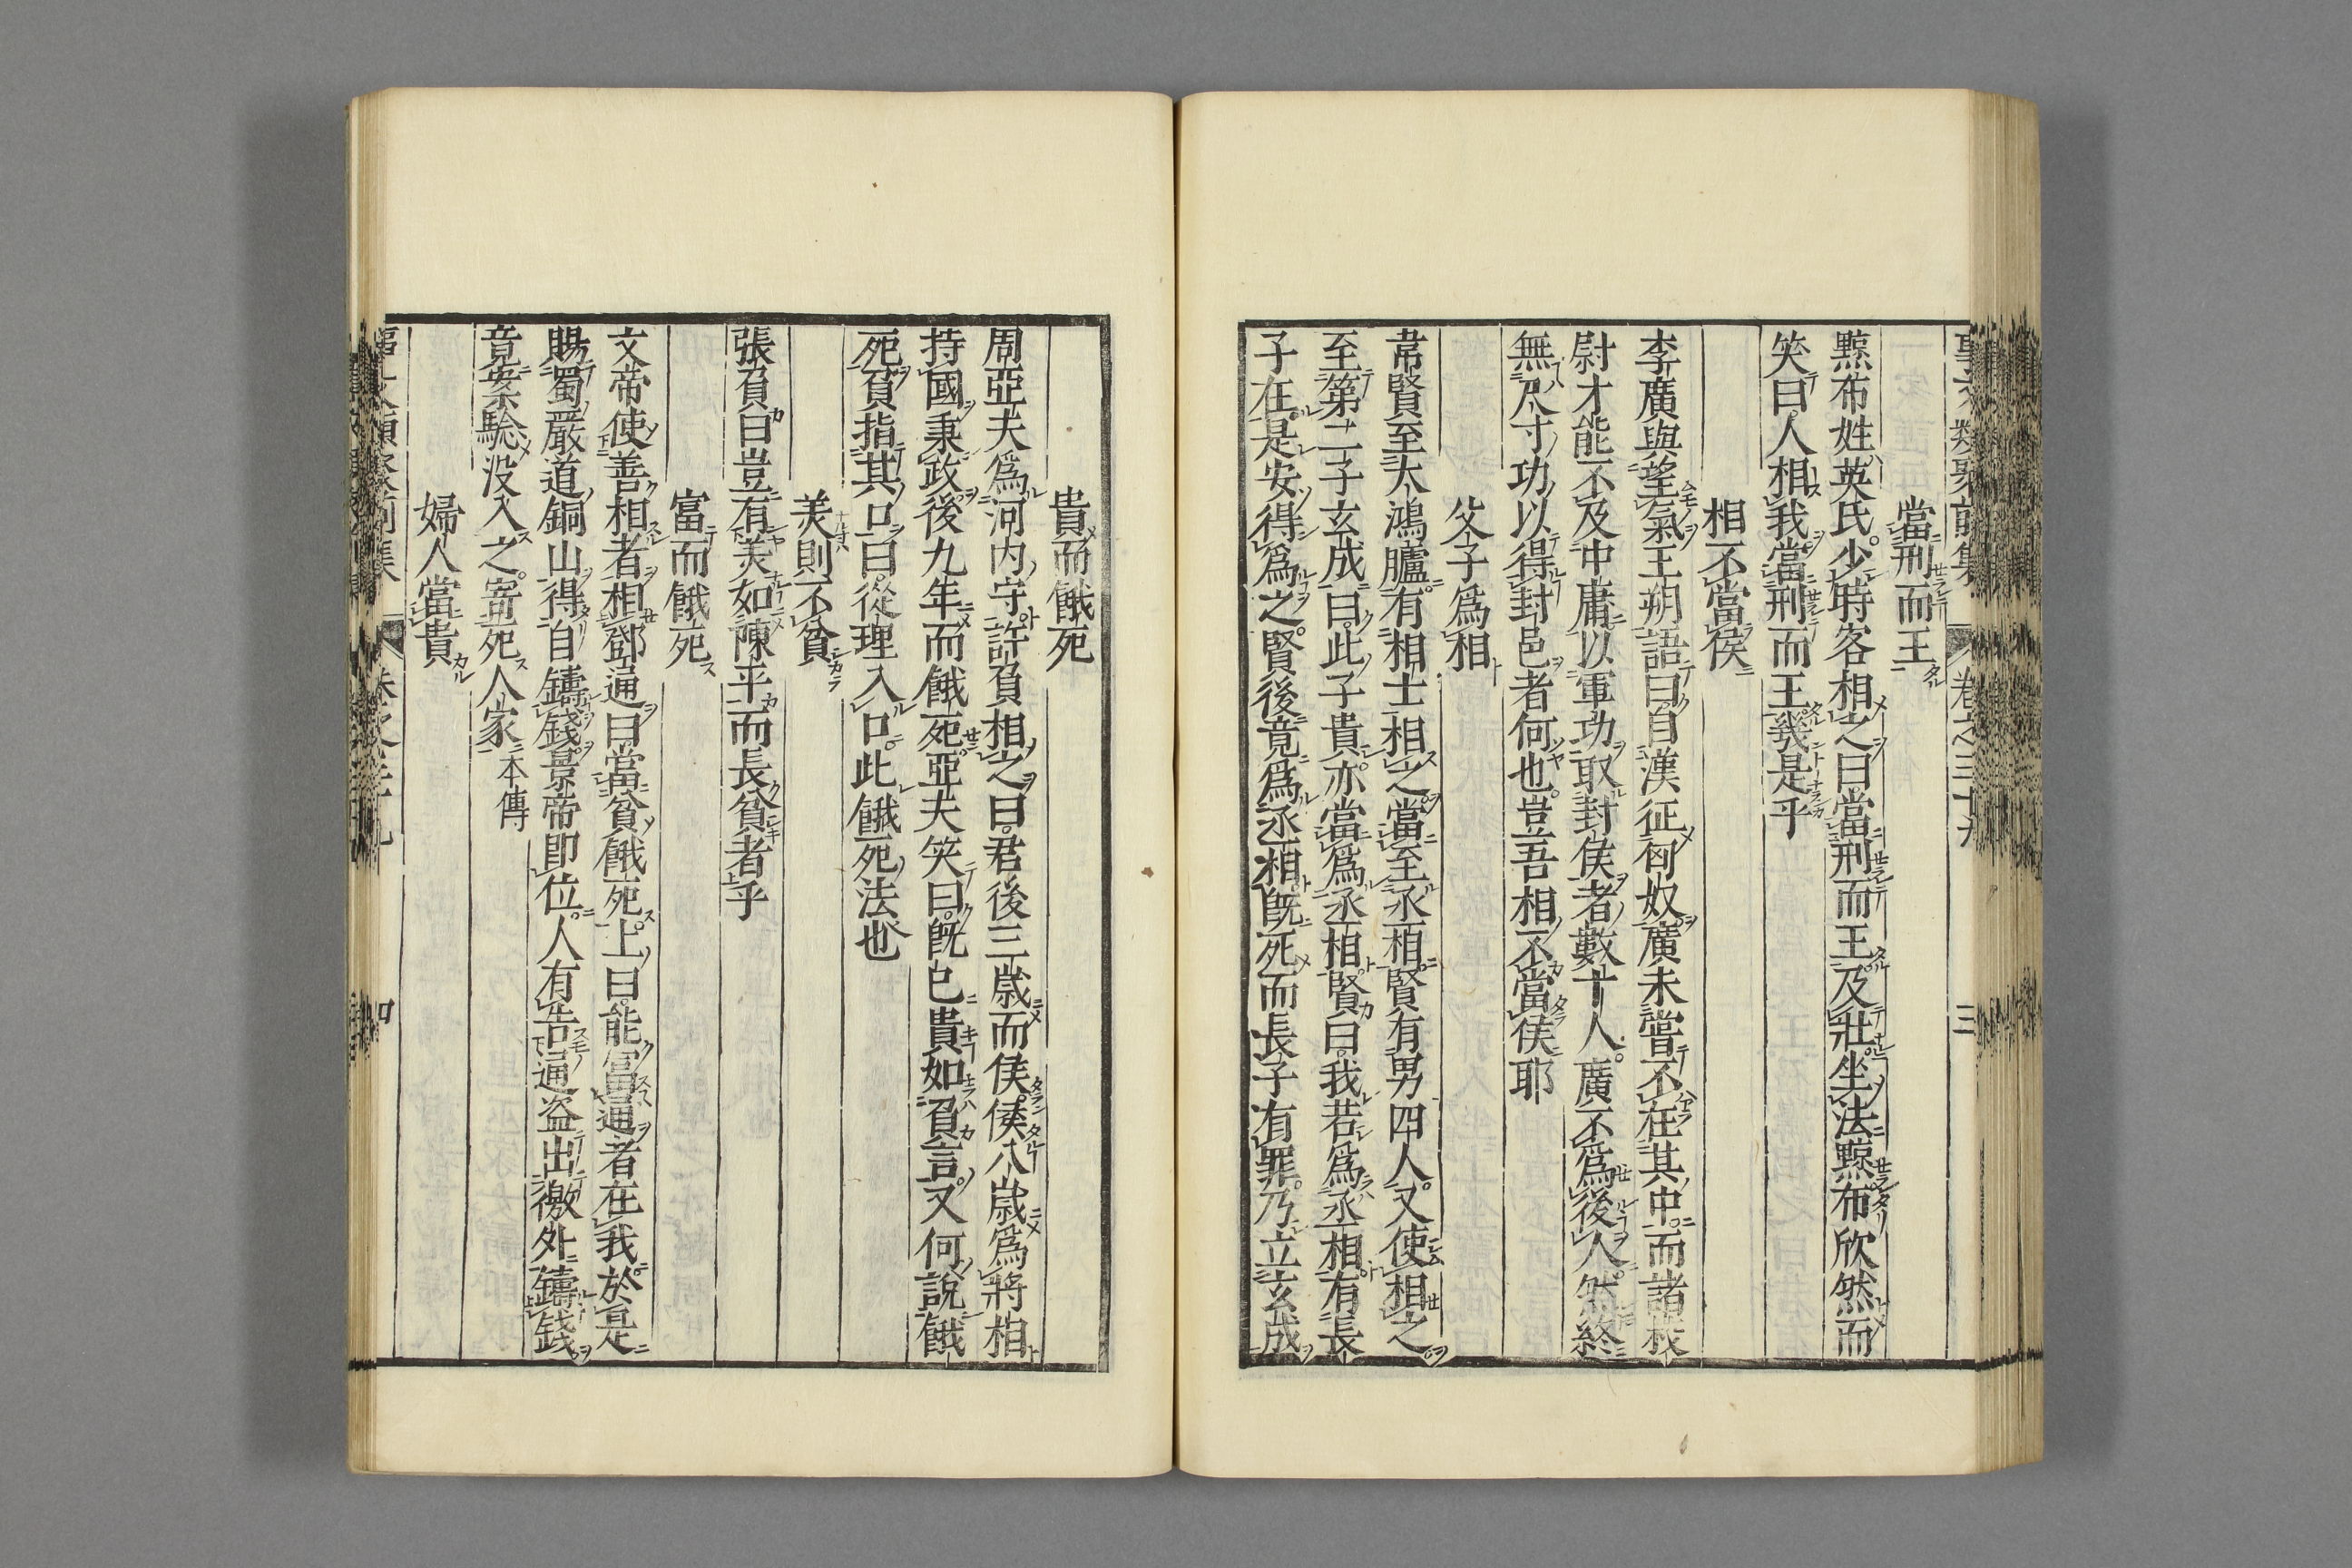 當刑而王
黥布姓英氏少時客相之曰當刑而王及壯坐法黥布欣然而
笑曰人相我當刑而王幾是乎
相不當侯
李廣與望氣王朔語曰自漢征匈奴廣未嘗不在其中而諸校
尉才能不及中庸以軍功取封侯者數十人廣不爲後人然終
無尺寸功以得封邑者何也豈吾相不當侯耶
父子爲相
韋賢至大鴻臚有相士相之當至丞相賢有男四人又使相之
至第二子玄成曰此子貴亦當爲丞相賢曰我若爲丞相有長
子在是安得爲之賢後竟爲丞相旣死而長子有罪乃立玄成
貴而餓死
周亞夫爲河内守許負相之曰君後三歲而侯侯八歲爲將相
持國秉政後九年而餓死亞夫笑曰旣已貴如負言又何說餓
死負指其口曰從理入口此餓死法也
美則不貧
張負曰豈有美如陳平而長貧者乎
富而餓死
文帝使善相者相鄧通曰當貧餓死上曰能富通者在我於是
賜蜀嚴道銅山得自鑄錢景帝即位人有告通盗出徼外鑄錢
竟案驗没入之寄死人家 本傳
婦人當貴